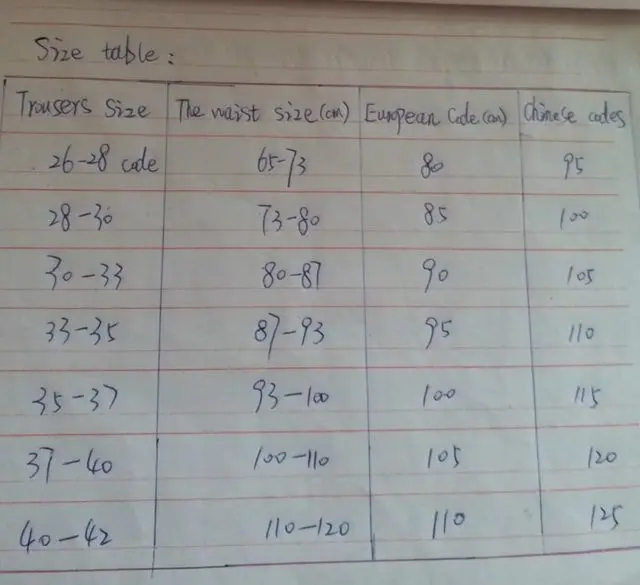 Size table:
Trousers Size The waist size(cm) European Code(cm) Chinese codes
26-28 code 65-73 80 95
28-30 73-80 85 100
30-33 80-87 90 105
33-35 87-93 95 110
35-37 93-100 100 115
37-40 100-110 105 120
40-42 110-120 110 125